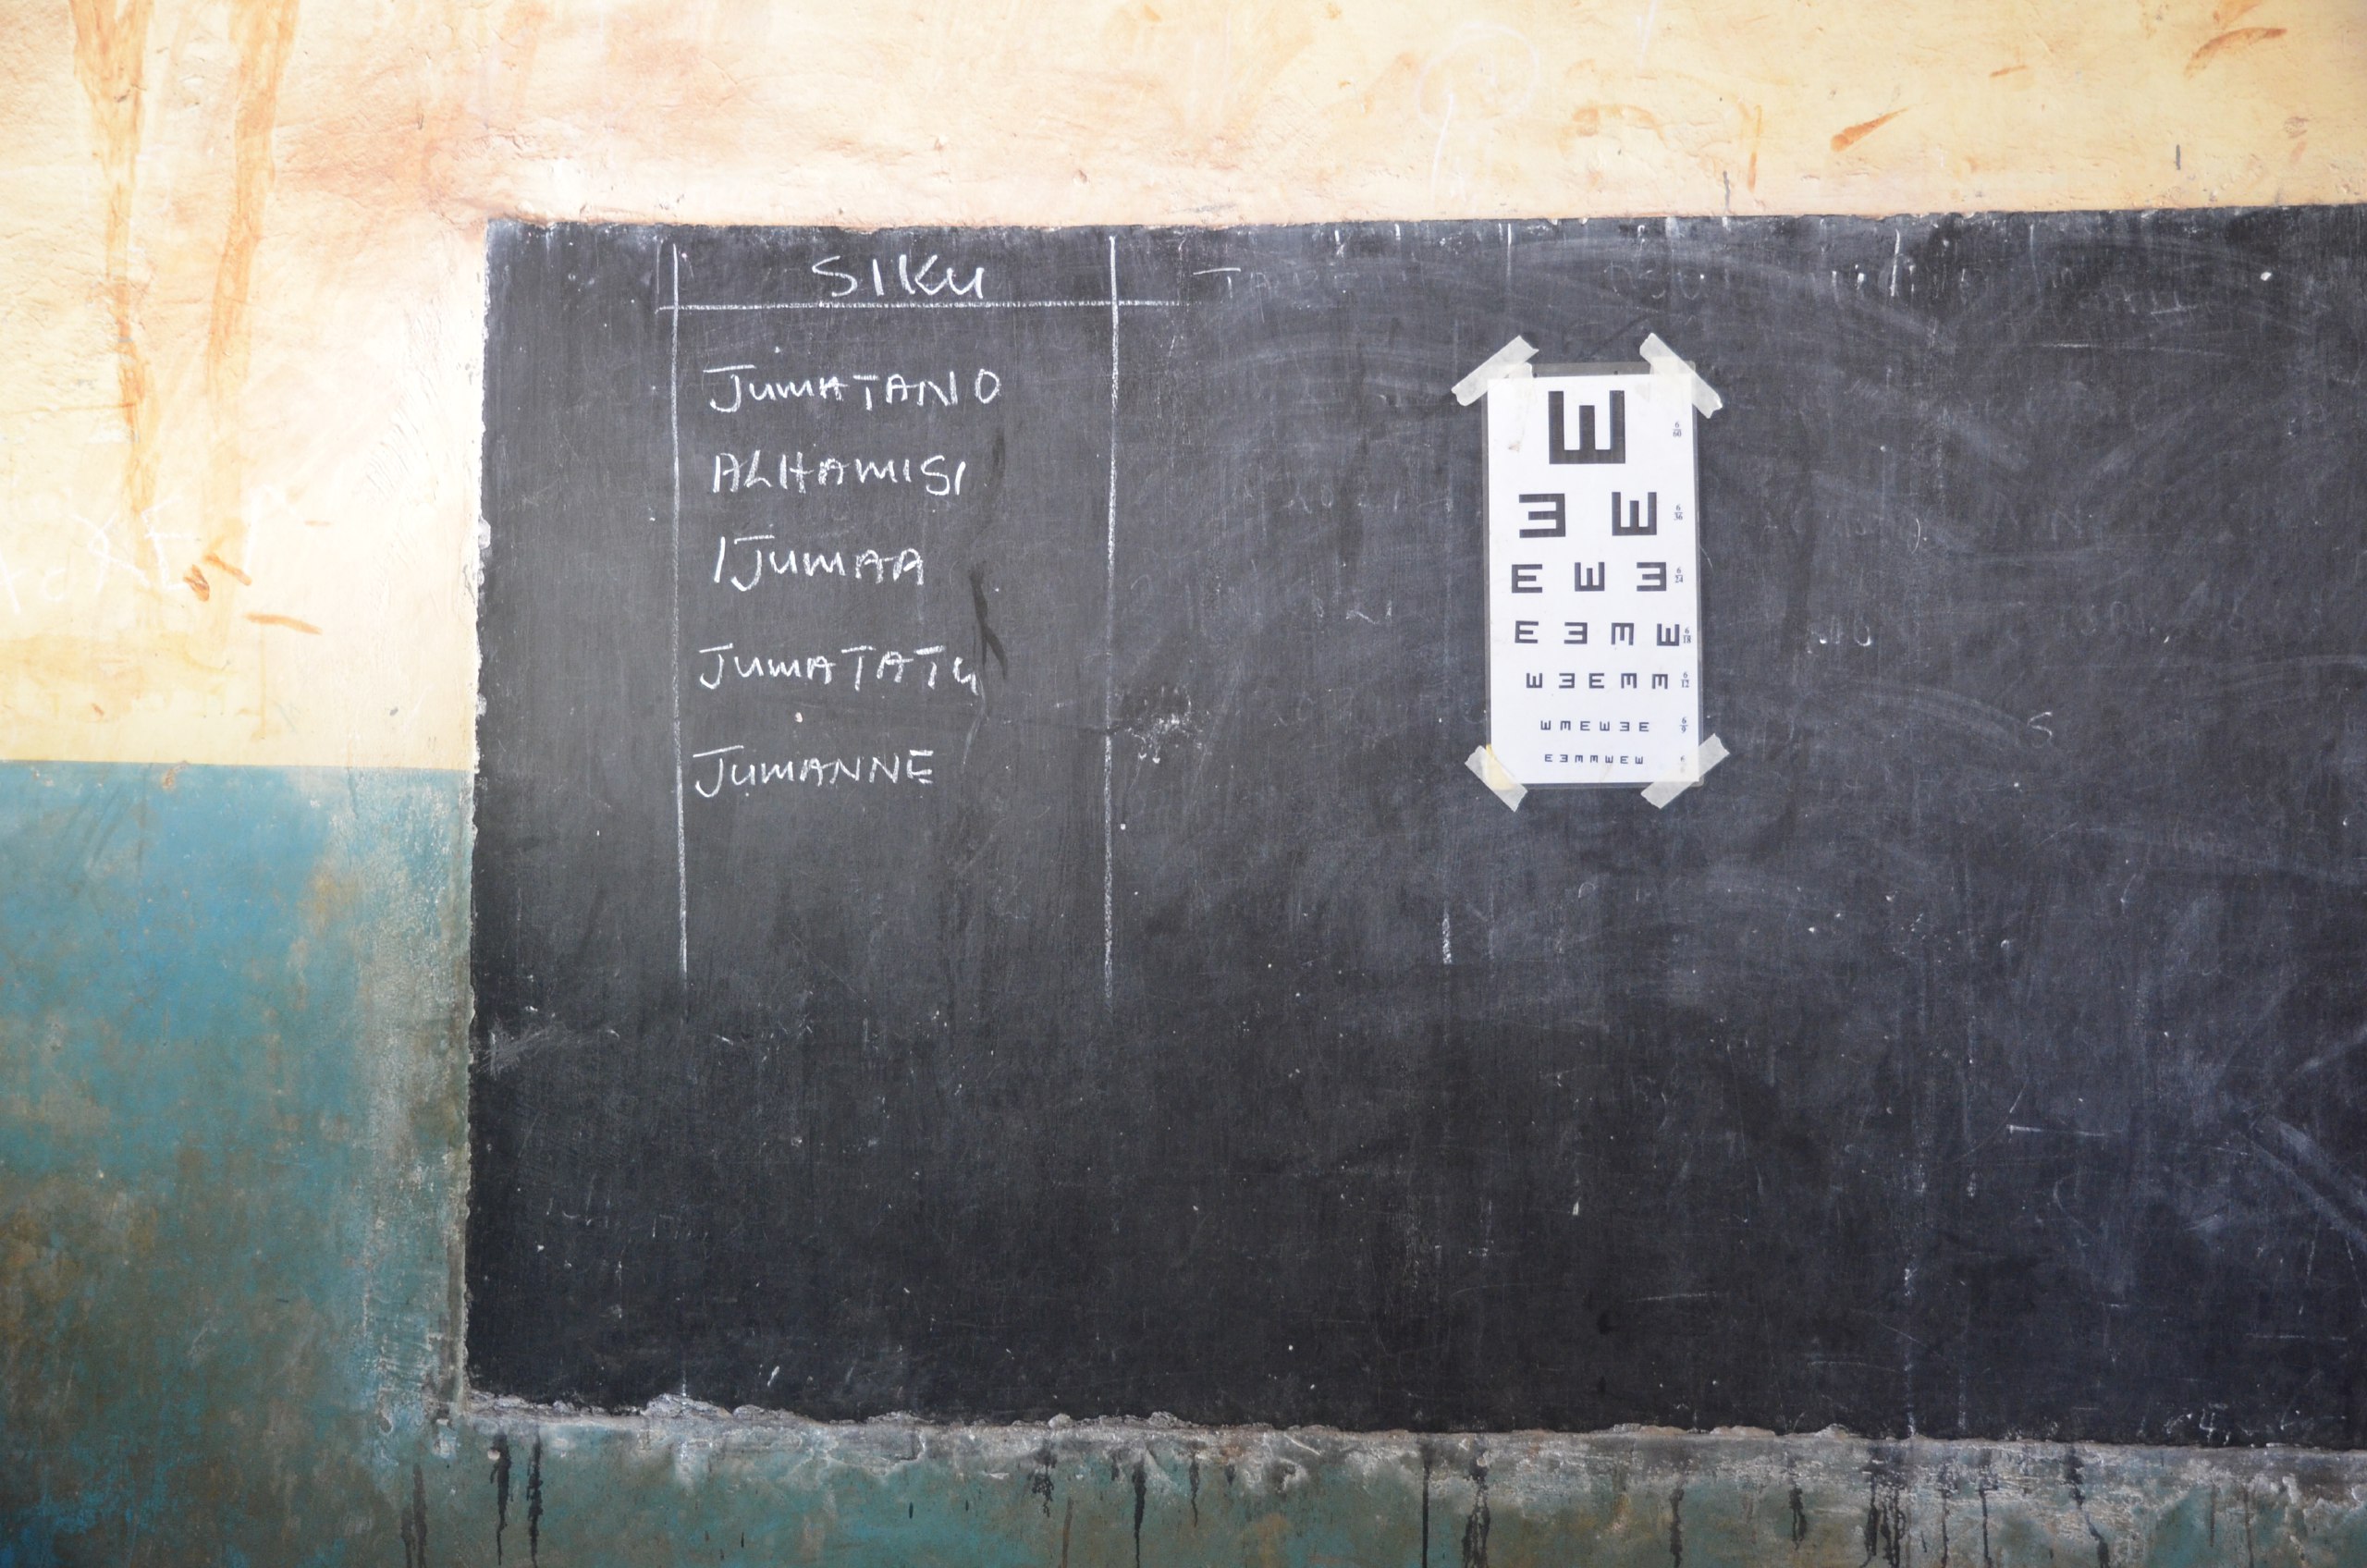 SIKU
JUMATANO
ALHAMISI
IJUMAA
JUMATATU
JUMANNE
E 6/60
E E 6/36
E E E 6/24
E E E E 6/18
E E E E E 6/12
E E E E E E 6/9
E E E E E E E